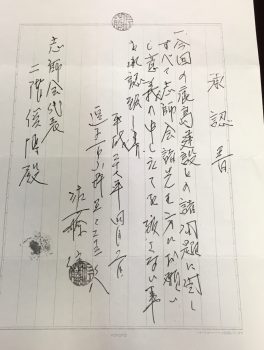 承認書
一今回の鹿島建設との諸問題に関し
すべて志師会諸先生方にお願い
し意義の申し立てを致さない事
を承認致します
平成二十八年四月一日
逗子市
志師会代表
二階俊博殿